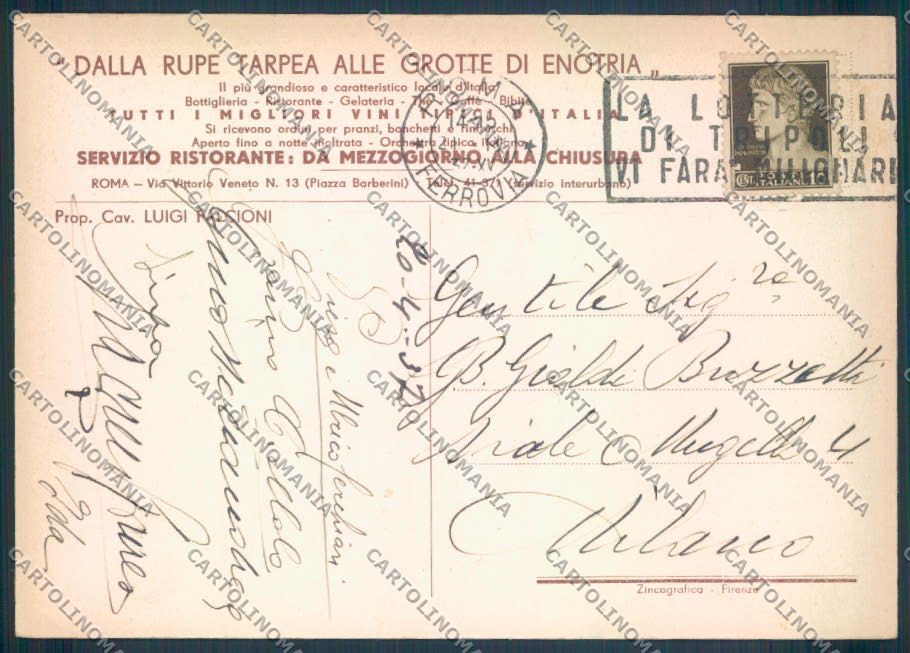 „ DALLA RUPE TARPEA ALLE GROTTE DI ENOTRIA „
Il più grandioso e caratteristico locale d'Italia
Bottiglieria - Ristorante - Gelateria - Thè - Caffè - Bibite
TUTTI I MIGLIORI VINI TIPICI D'ITALIA
Si ricevono ordini per pranzi, banchetti e rinfreschi
Aperto fino a notte inoltrata - Orchestra tipica italiana
SERVIZIO RISTORANTE: DA MEZZOGIORNO ALLA CHIUSURA
ROMA - Via Vittorio Veneto N. 13 (Piazza Barberini) Telef. 41-371 (servizio interurbano)
Prop. Cav. LUIGI FALCIONI
ROMA
FERROVIA
LA LOTTERIA
DI TRIPOLI
VI FARÀ MILIONARI
POSTE
ITALIANE
20-4-37
Gentile Sig.ra
G.B. Gialdi Buzzetti
Viale Mugello 4
Milano
Lina
Ida
Zincografica - Firenze
CARTOLINOMANIA